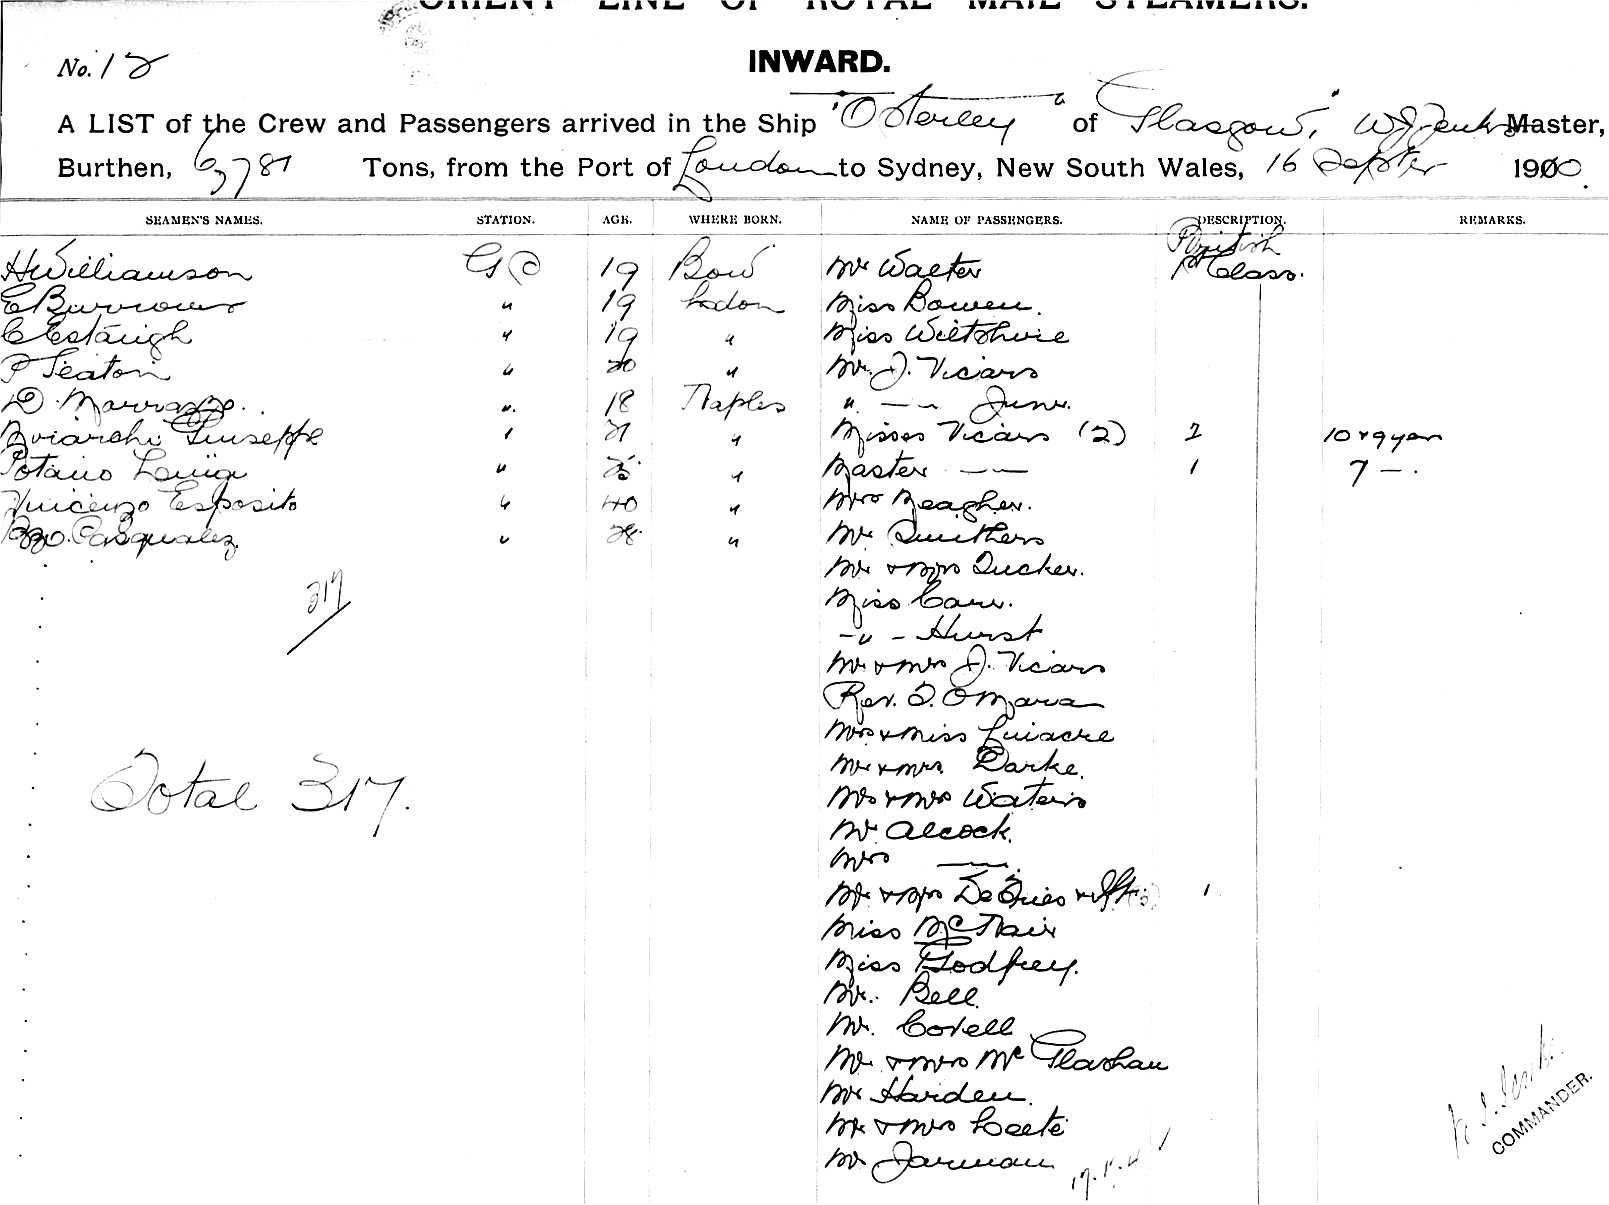 ORIENT LINE OF ROYAL MAIL STEAMERS.
No. 12
INWARD.
A LIST of the Crew and Passengers arrived in the Ship "Osterley" of Glasgow, W J Jenks Master,
Burthen, 6,781 Tons, from the Port of London to Sydney, New South Wales, 16 Septer 1910.
SEAMEN'S NAMES. STATION. AGE. WHERE BORN. NAME OF PASSENGERS. DESCRIPTION. REMARKS.
British
H Williamson GS 19 Bow Mr Walter 1st Class.
E Burrows " 19 Lodon Miss Bowen.
C Estaugh " 19 " Miss Wiltshire
P Seaton " 20 " Mr. J. Vicars
D. Marrazzo. " 18 Naples " — " Junr.
Giuseppe " 21 " Misses Vicars (2) 2 10 & 9 year
Potano Luigi " 25 " Master — 1 7 —.
Vincenzo Esposito " 40 " Mrs Meagher.
Pasquale " 28 " Mr Smithers
Mr & Mrs Tucker.
Miss Carr.
217
— " — Hurst
Mr & Mrs J. Vicars
Rev. T. O Mara
Mrs & Miss Liniacre
Mr & Mrs. Darke.
Total 317.
Mrs Waters
Mr Alcock.
Mrs —
Mr & Mrs De Vries & 1
Miss McNair
Miss Godfrey.
Mr. Bell.
Mr. Covell
Mr & Mrs McGlashan
Mr Harden.
Mr & Mrs Leete
Mr Jarman
COMMANDER.